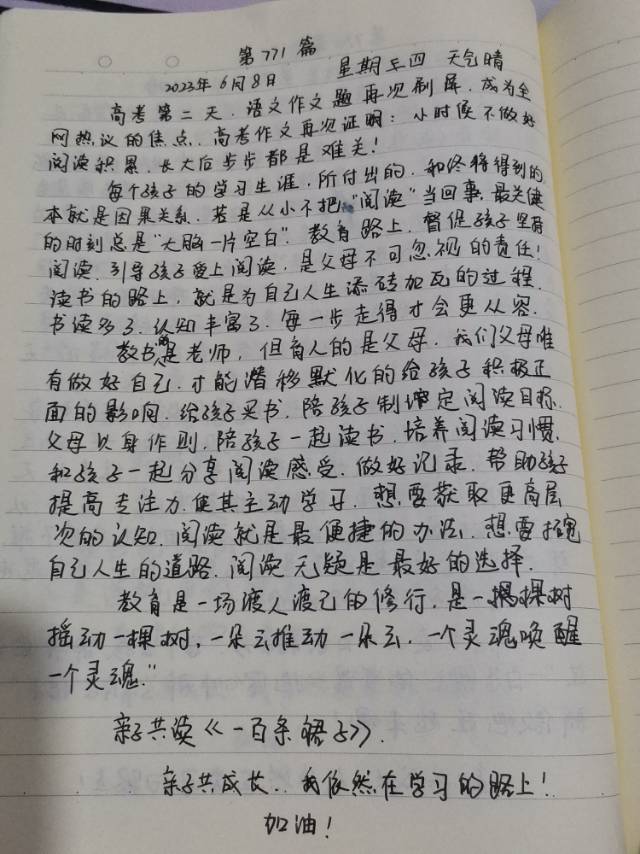 第771篇
2023年6月8日 星期四 天气晴
高考第二天,语文作文题再次刷屏,成为全
网热议的焦点,高考作文再次证明:小时候不做好
阅读积累,长大后步步都是难关!
每个孩子的学习生涯,所付出的,和终将得到的
本就是因果关系,若是从小不把"阅读"当回事,最关键
的时刻总是"大脑一片空白"。教育路上,督促孩子坚持
阅读,引导孩子爱上阅读,是父母不可忽视的责任!
读书的路上,就是为自己人生添砖加瓦的过程,
书读多了,认知丰富了,每一步走得才会更从容。
教书的是老师,但育人的是父母,我们父母唯
有做好自己,才能潜移默化的给孩子积极正
面的影响,给孩子买书,陪孩子制定阅读目标,
父母以身作则,陪孩子一起读书,培养阅读习惯,
和孩子一起分享阅读感受,做好记录,帮助孩子
提高专注力,使其主动学习,想要获取更高层
次的认知,阅读就是最便捷的办法,想要拓宽
自己人生的道路,阅读无疑是最好的选择。
教育是一场渡人渡己的修行,是一棵树
摇动一棵树,一朵云推动一朵云,一个灵魂唤醒
一个灵魂."
亲子共读《一百条裙子》.
亲子共成长..我依然在学习的路上!
加油!